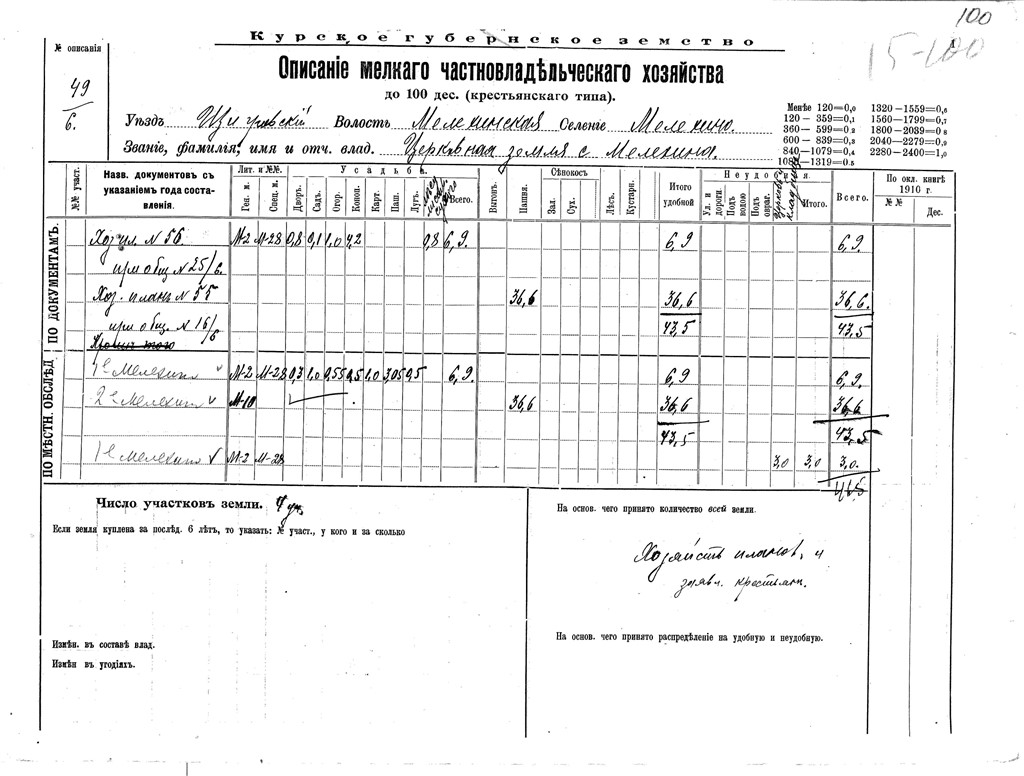 100
15-100
Курское губернское земство
№ описанія
49/6.
Описаніе мелкаго частновладѣльческаго хозяйства
до 100 дес. (крестьянскаго типа).
Уѣздъ Щигровскій Волость Мелехинская Селеніе Мелехино.
Званіе, фамилія, имя и отч. влад. Церковная земля с Мелехина.
Менѣе 120=0,0 1320—1559=0,6
120— 359=0,1 1560—1799=0,7
360— 599=0,2 1800—2039=0,8
600— 839=0,3 2040—2279=0,9
840—1079=0,4 2280—2400=1,0
1080—1319=0,5
№№ участ. Назв. документовъ съ указаніемъ года составленія. Лит. и №№. Ген. м. Спец. м. Усадьба. Дворъ. Садъ. Огор. Коноп. Карт. Паш. Лугъ. Всего. Выгонъ. Пашня. Сѣнокосъ. Зал. Сух. Лѣсъ. Кустарн. Итого удобной Неудобная. Ул. и дороги. Подъ водою Подъ овраг. Церковь кладбище Итого. Всего. По окл. книгѣ 1910 г. №№ Дес.
ПО ДОКУМЕНТАМЪ.
Хоз. пл. N 56 М-2 М-28 0,8 0,1 1,0 4,2 0,8 6,9. 6,9 6,9.
при общ. N 25/6.
Хоз. планъ N 55 36,6 36,6 36,6.
при общ. N 16/6 43,5 43,5
Кромѣ того
ПО МѢСТН. ОБСЛѢД
1 с Мелехино М-2 М-28 0,3 1,0 0,55 0,5 1,0 3,05 0,5 6,9. 6,9 6,9.
2 с Мелехино М-10 36,6 36,6 36,6
43,5 43,5
1 с Мелехино М-2 М-28 3,0 3,0 3,0.
46,5
Число участковъ земли. 4 уч.
Если земля куплена за послѣд. 6 лѣтъ, то указать: № участ., у кого и за сколько
На основ. чего принято количество всей земли.
Хозяйств планов, и
заявл. крестьян.
Измѣн. въ составѣ влад.
Измѣн въ угодіяхъ.
На основ. чего принято распредѣленіе на удобную и неудобную.